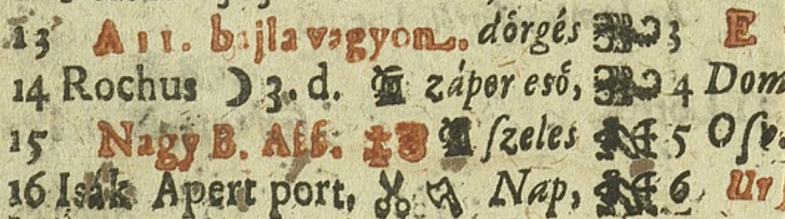 13 A 11. b jla vagyon. dörgés 3 E
14 Rochus ☽ 3. d. zápor eső, 4 Dom
15 Nagy B. Aſſ. ſzeles 5 Oſv.
16 Isák Apert port, Nap, 6 Ur